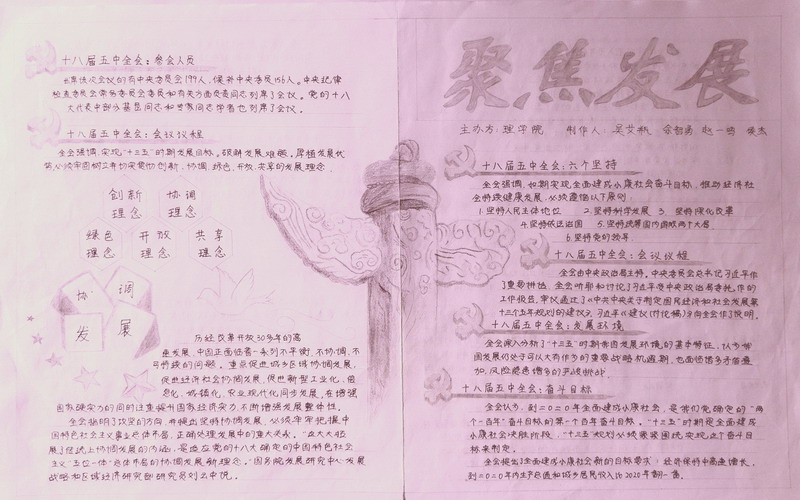 十八届五中全会：参会人员
出席这次会议的有中央委员会199人，候补中央委员156人。中央纪律
检查委员会常务委员会委员和有关方面负责同志列席了会议。党的十八
大代表中部分基层同志和专家同志学者也列席了会议。
十八届五中全会：会议议程
全会强调，实现"十三五"时期发展目标，破解发展难题，厚植发展优
势，必须牢固树立并切实贯彻创新、协调、绿色、开放、共享的发展理念
创新 协调
理念 理念
绿色 开放 共享
理念 理念 理念
协 调
发 展
历经改革开放30多年的高
速发展，中国正面临着一系列不平衡、不协调、不
可持续的问题。重点促进城乡区域协调发展，
促进经济社会协调发展，促进新型工业化、信
息化、城镇化、农业现代化同步发展，在增强
国家硬实力的同时注重提升国家软实力，不断增强发展整体性。
全会指明了攻坚的方向，并提出坚持协调发展，必须牢牢把握中
国特色社会主义事业总体布局，正确处理发展中的重大关系。
社会主义"五位一体"总体布局的协调发展新理念。"国务院发展研究中心发展
战略和区域经济研究部研究员刘云中说。
聚焦发展
主办方：理学院 制作人：
十八届五中全会：六个坚持
全会强调，如期实现全面建成小康社会奋斗目标，推动经济社
会持续健康发展，必须遵循以下原则：
1.坚持人民主体地位 2.坚持科学发展 3.坚持深化改革
4.坚持依法治国 5.坚持统筹国内国际两个大局
6.坚持党的领导
十八届五中全会：会议议程
全会由中央政治局主持。中央委员会总书记习近平作
了重要讲话。全会听取和讨论了习近平受中央政治局委托作的
工作报告，审议通过了《中共中央关于制定国民经济和社会发展第
十三个五年规划的建议》。习近平就《建议（讨论稿）》向全会作了说明。
十八届五中全会：发展环境
全会深入分析了"十三五"时期我国发展环境的基本特征，认为我
国发展仍处于可以大有作为的重要战略机遇期，也面临诸多矛盾叠
加、风险隐患增多的严峻挑战。
十八届五中全会：奋斗目标
全会认为，到二0二0年全面建成小康社会，是我们党确定的"两
个一百年"奋斗目标的第一个百年奋斗目标。"十三五"时期是全面建成
小康社会决胜阶段，"十三五"规划必须紧紧围绕实现这个奋斗目
标来制定。
全会提出了全面建成小康社会新的目标要求：经济保持中高速增长，
到二0二0年国内生产总值和城乡居民收入比2020年翻一番。